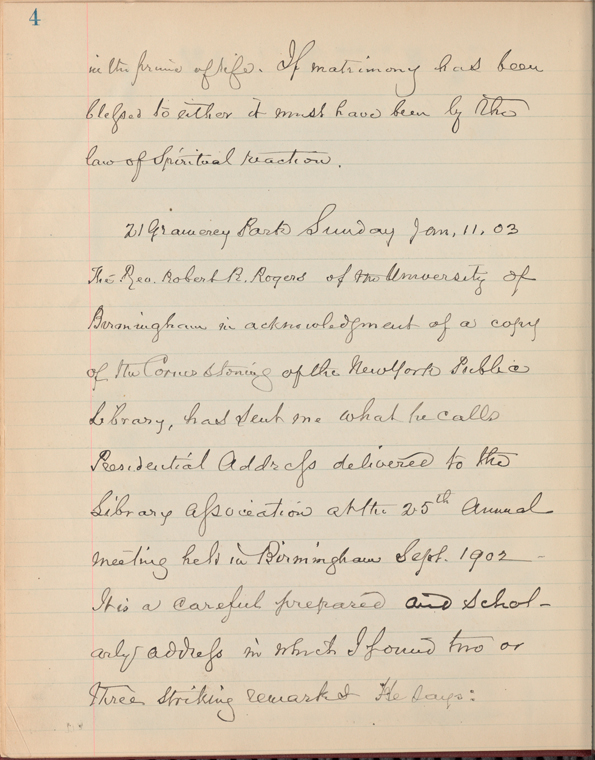 4
in the prime of life. If matrimony has been
blessed to either it must have been by the
law of Spiritual reaction.
21 Gramercy Park Sunday Jan. 11. 03
The Rev. Robert R. Rogers of the University of
Birmingham in acknowledgment of a copy
of the Corner Stoning of the New York Public
Library, has sent me what he calls
Presidential Address delivered to the
Library Association at the 25th Annual
meeting held in Birmingham Sept. 1902 -
It is a careful prepared and Schol-
arly address in which I found two or
three striking remarks He Says: